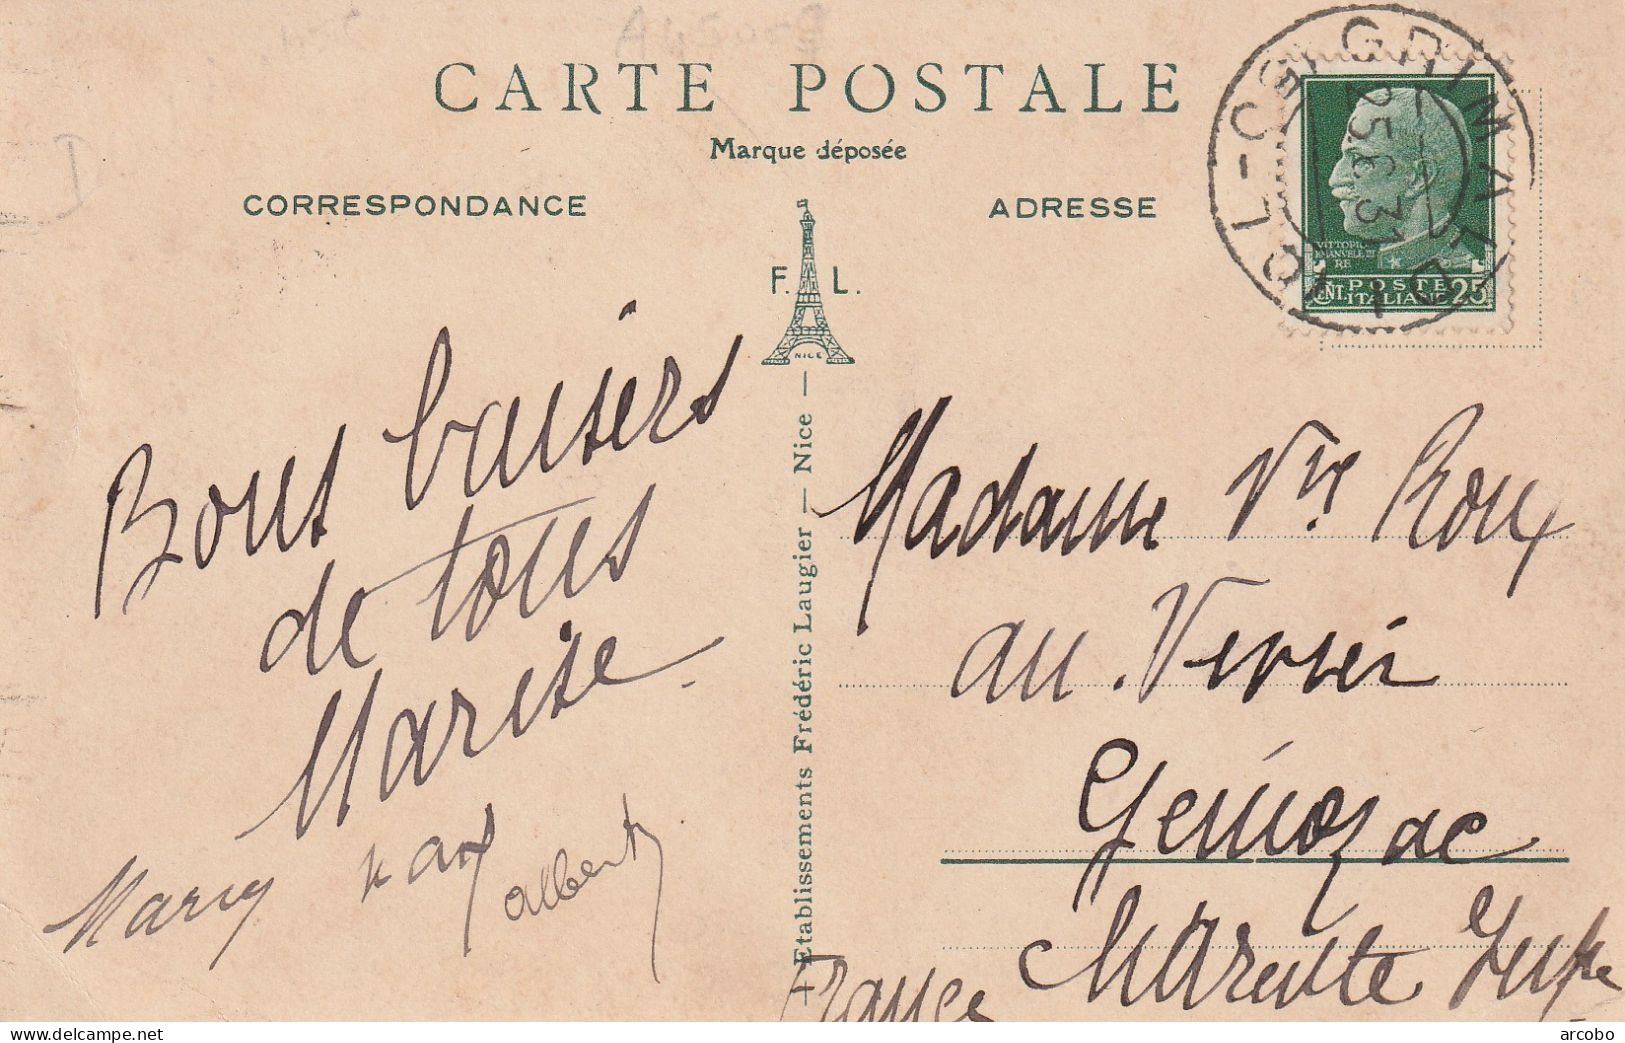 CARTE POSTALE
Marque déposée
CORRESPONDANCE
ADRESSE
F. L.
NICE
Etablissements Frédéric Laugier — Nice —
GRIMALDI
25.6.31
VITTORIO
EMANUELE III
RE
CENT. POSTE
ITALIANE 25
Bons baisers
de tous
Marise
Marcy Max
Albert
Madame Vve Roux
au Verrier
Gémozac
Charente Infre
France
delcampe.net
arcobo